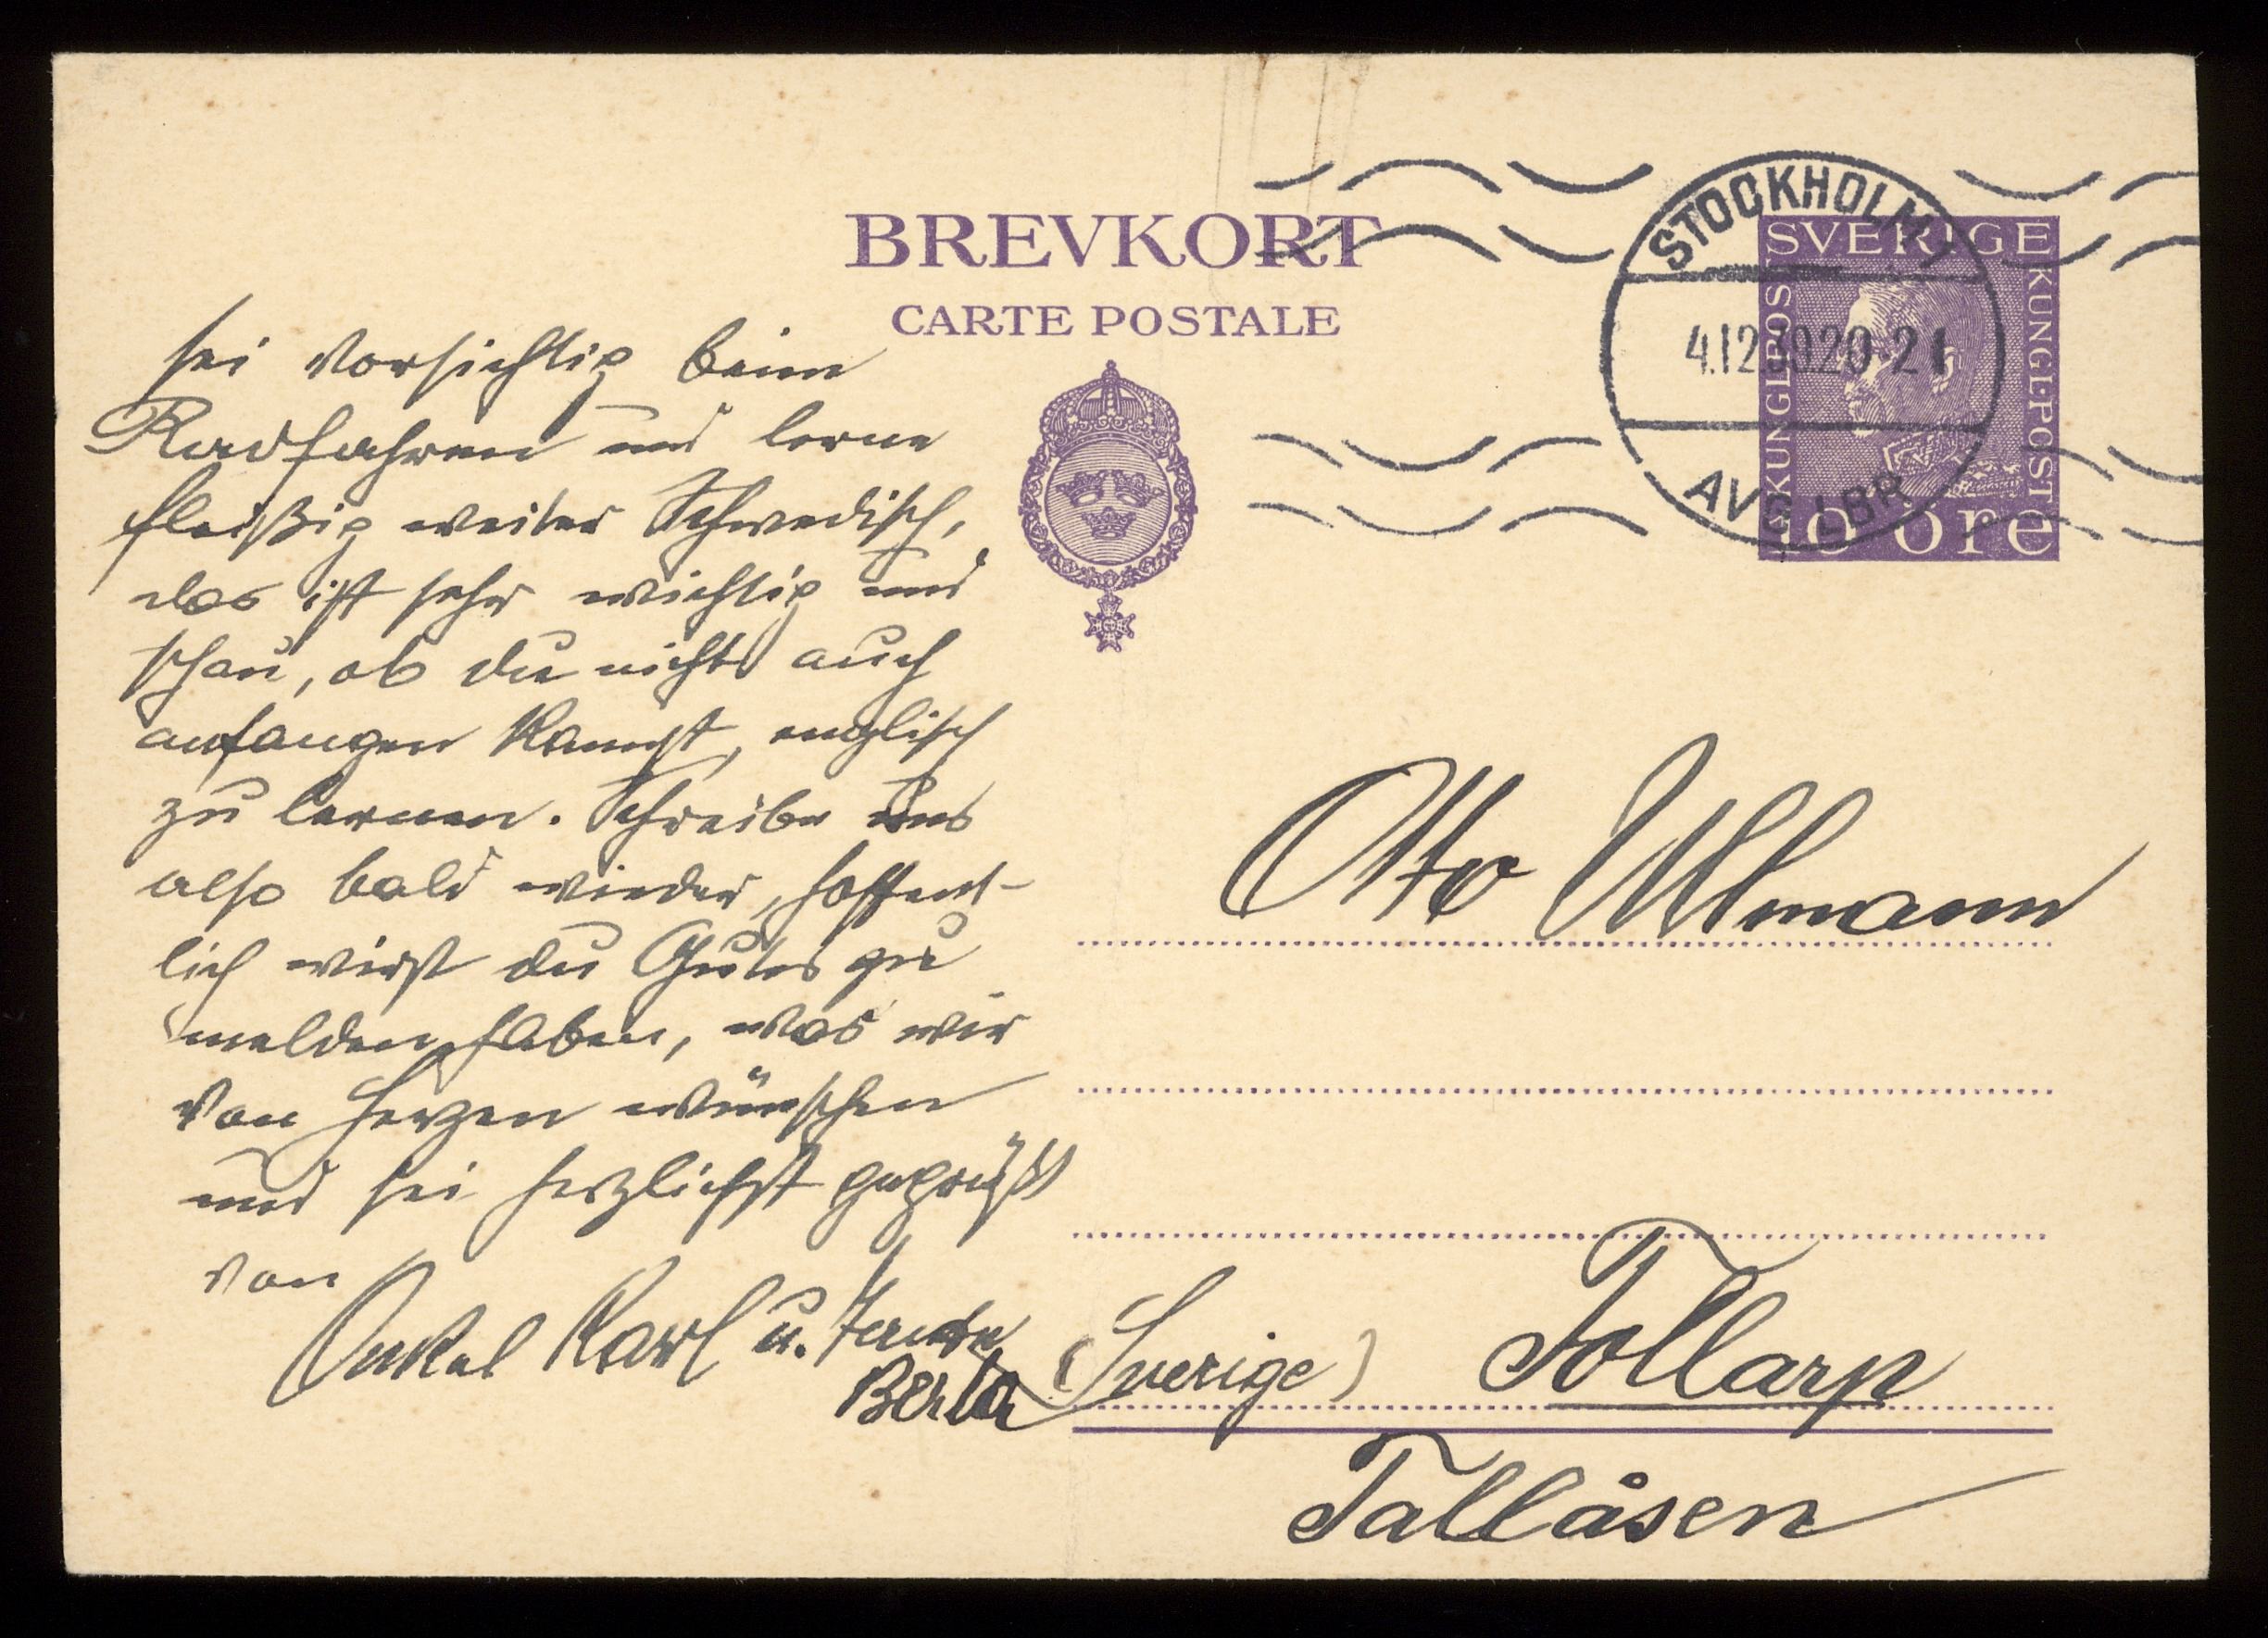 BREVKORT
CARTE POSTALE
STOCKHOLM 1
4.12.39.20-21
AVG. LBR
SVERIGE
KUNGL POST
KUNGL·POST
10 öre
sei vorsichtig beim
Radfahren und lerne
fleißig weiter Schwedisch,
das ist sehr wichtig und
schau, ob du nicht auch
anfangen kannst, englisch
zu lernen. Schreibe uns
also bald wieder, hoffent-
lich wirst du Gutes zu
melden haben, was wir
von Herzen wünschen
und sei herzlichst gegrüßt
von
Onkel Karl u. Tante
Berta
Otto Ullmann
(Sverige) Tollarp
Tallåsen